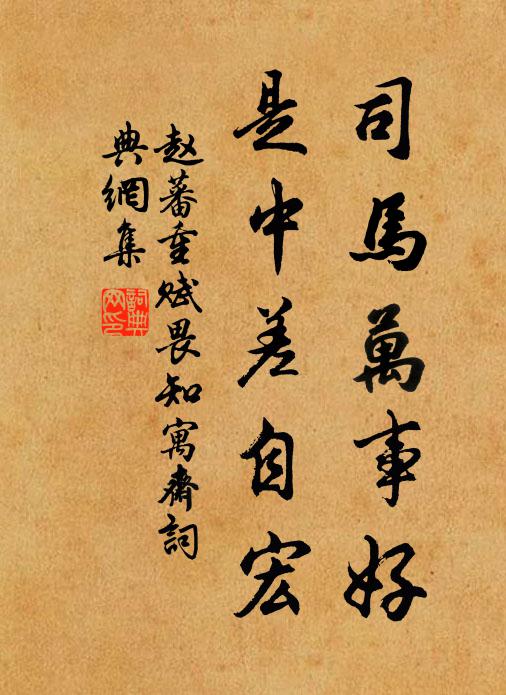 司馬萬事好
是中差自宏
赵蕃重赋畏知寓齋詞
典網集
詞典
网印